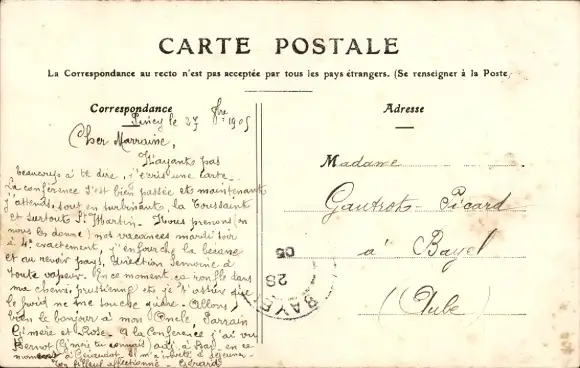 CARTE POSTALE
La Correspondance au recto n'est pas acceptée par tous les pays étrangers. (Se renseigner à la Poste
Correspondance
Piney le 27 8bre 1905
Cher Marraine,
N'ayant pas
beaucoup à te dire, j'écris une carte.
La conférence s'est bien passée et maintenant
j'attends, tout en turbinant, la Toussaint
et surtout St Martin. Nous prenons (on
nous les donne) nos vacances mardi soir
à 4h exactement, j'enfourche la bécane
et au revoir pays, direction
toute vapeur. En ce moment ça ronfle dans
ma cheminée prussienne et je t'assure que
le froid ne me touche guère. Allons,
bien le bonjour à mon Oncle Parrain
et Rose. A la Conférence j'ai vu
Bernot
moment à il m'a invité à déjeuner.
Ton filleul affectionné - Gérard
Adresse
Madame
Gautrot-Picard
à Bayel
(Aube)
BAYEL
28
05